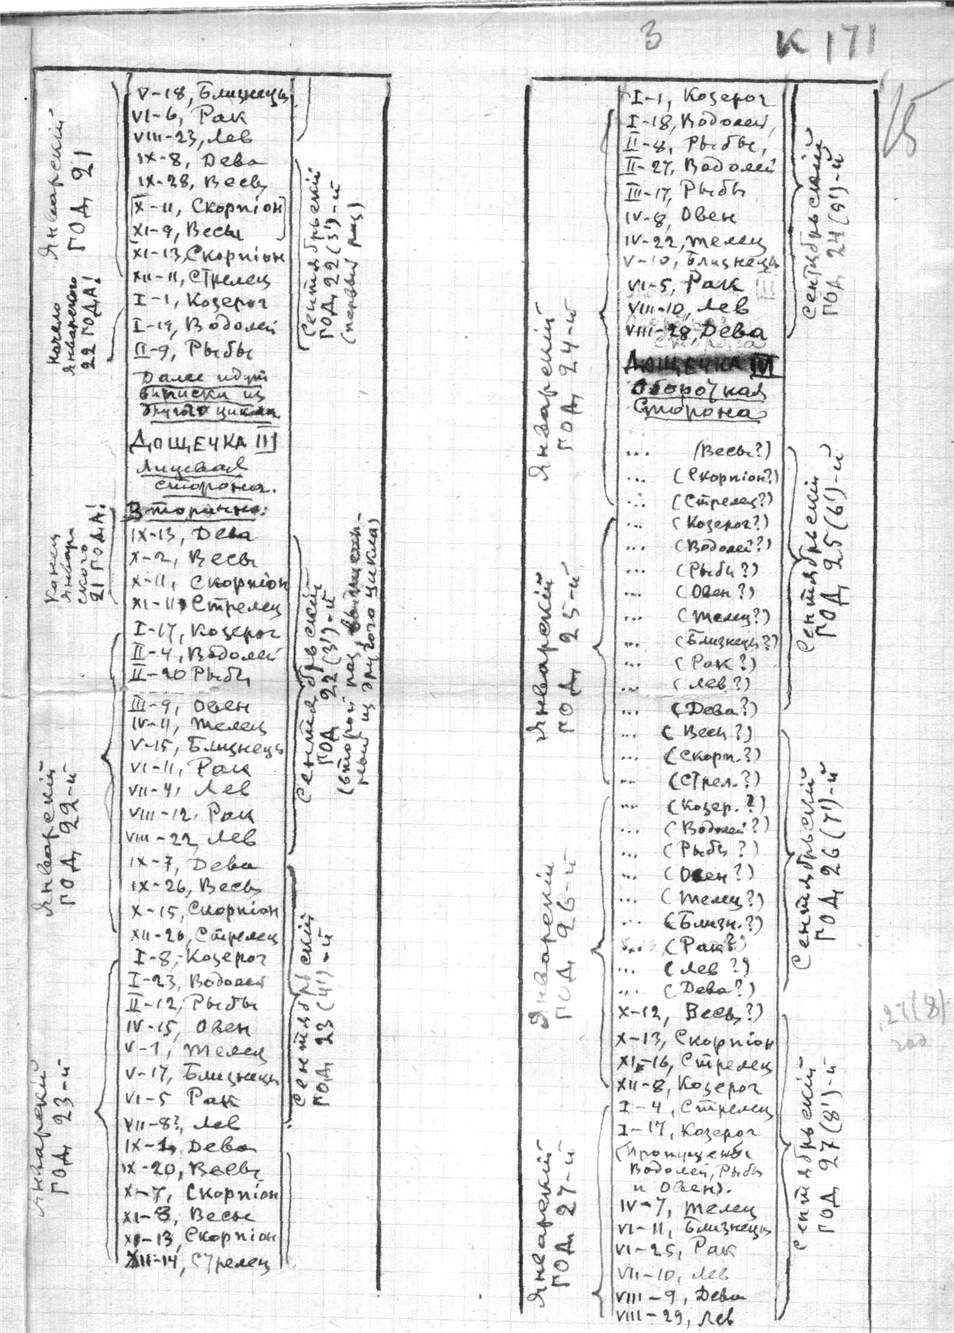 3
К 171
15
V-18, Близнецы
VI-6, Рак
VIII-23, Лев
IX-8, Дева
IX-28, Весы
X-11, Скорпіон
XI-9, Весы
XI-13, Скорпіон
XII-11, Стрелец
I-1, Козерог
I-19, Водолей
II-9, Рыбы
Далее идут
выписки из
другого цикла.
ДОЩЕЧКА III
Лицевая
сторона.
Вторично:
IX-13, Дева
X-2, Весы
X-11, Скорпіон
XI-11, Стрелец
I-17, Козерог
II-4, Водолей
II-20 Рыбы
III-9, Овен
IV-11, Телец
V-15, Близнецы
VI-11, Рак
VII-4, Лев
VIII-12, Рак
VIII-22, Лев
IX-7, Дева
IX-26, Весы
X-15, Скорпіон
XII-26, Стрелец
I-8, Козерог
I-23, Водолей
II-12, Рыбы
IV-15, Овен
V-1, Телец
V-17, Близнецы
VI-5 Рак
VII-8?, Лев
IX-1, Дева
IX-20, Весы
X-7, Скорпіон
XI-8, Весы
XI-13, Скорпіон
XII-14, Стрелец
Январскій
ГОД 21
Начало
Январского
22 ГОДА!
Конец
Январ-
ского
21 ГОДА!
Январскій
ГОД 22-й
Январскій
ГОД 23-й
Сентябрьскій
ГОД 22(3')-й
(первый раз)
Сентябрьскій
ГОД 22(3')-й
(второй раз,
ный из другого цикла)
Сентябрьскій
ГОД 23(4')-й
I-1, Козерог
I-18, Водолей,
II-8, Рыбы,
II-27, Водолей
III-17, Рыбы
IV-8, Овен
IV-22, Телец
V-10, Близнецы
VI-5, Рак
VIII-10, Лев
VIII-28, Дева
ДОЩЕЧКА III
Оборотная
Сторона
... (Весы?)
... (Скорпіон?)
... (Стрелец?)
... (Козерог?)
... (Водолей?)
... (Рыбы?)
... (Овен?)
... (Телец?)
... (Близнецы?)
... (Рак?)
... (Лев?)
... (Дева?)
... (Весы?)
... (Скорп.?)
... (Стрел.?)
... (Козер.?)
... (Водолей?)
... (Рыбы?)
... (Овен?)
... (Телец?)
... (Близн.?)
... (Рак?)
... (Лев?)
... (Дева?)
X-12, Весы?)
X-13, Скорпіон
XI-16, Стрелец
XII-8, Козерог
I-4, Стрелец
I-17, Козерог
(Пропущены
Водолей, Рыбы
и Овен).
IV-7, Телец
VI-11, Близнецы
VI-25, Рак
VII-10, Лев
VIII-9, Дева
VIII-29, Лев
Январскій
ГОД 24-й
Январскій
ГОД 25-й
Январскій
ГОД 26-й
Январскій
ГОД 27-й
Сентябрьскій
ГОД 24(5')-й
Сентябрьскій
ГОД 25(6')-й
Сентябрьскій
ГОД 26(7')-й
Сентябрьскій
ГОД 27(8')-й
27(8)
год